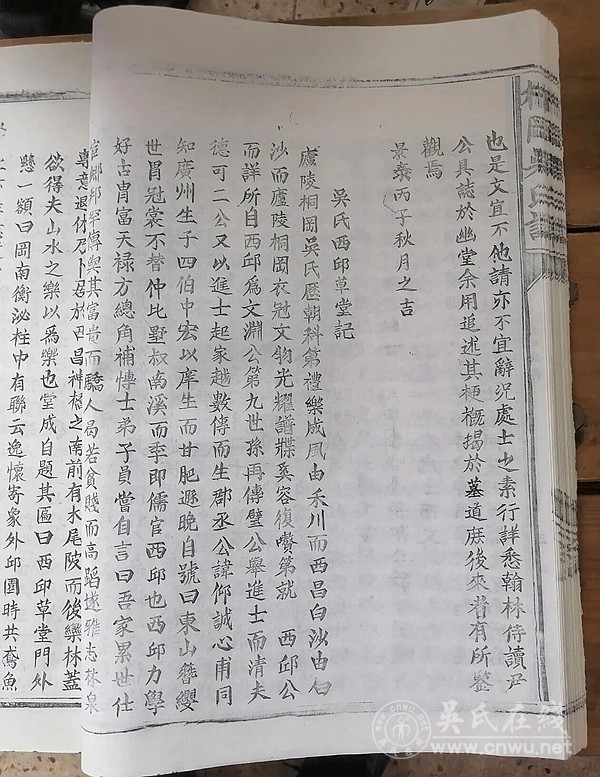 桐岡吳氏譜
也是文宜不他請亦不宜辭況處士之素行詳悉翰林侍讀尹
公具誌於幽堂余用追述其梗概揭於墓道庶後來者有所鑒
觀焉
景泰丙子秋月之吉
吳氏西邱草堂記
廬陵桐岡吳氏歷朝科第禮樂成風由禾川而西昌白沙由白
沙而廬陵桐岡衣冠文物光耀譜牒奚容復嘖第就 西邱公
而詳所自西邱為文淵公第九世孫再傳璧公舉進士而清夫
德可二公又以進士起家越數傳而生郡丞公諱仰誠心甫同
知廣州生子四伯中宏以庠生而甘肥遯晚自號曰東山簪纓
世胄冠裳不替仲比墅叔南溪而季即儒官西邱也西邱力學
好古冑富天祿方總角補愽士弟子員嘗自言曰吾家累世仕
宦鄉邦罕傳與其富貴而驕人局若貧賤而高蹈遂雅志林泉
專意退休乃卜居於西昌神橋之南前有水尾陂而後欒林蓋
欲得夫山水之樂以為樂也堂成自題其匾曰西邱草堂門外
懸一額曰岡南衡泌柱中有聯云逸懷寄象外邱園時共鳶魚
吳氏在線
www.cnwu.net